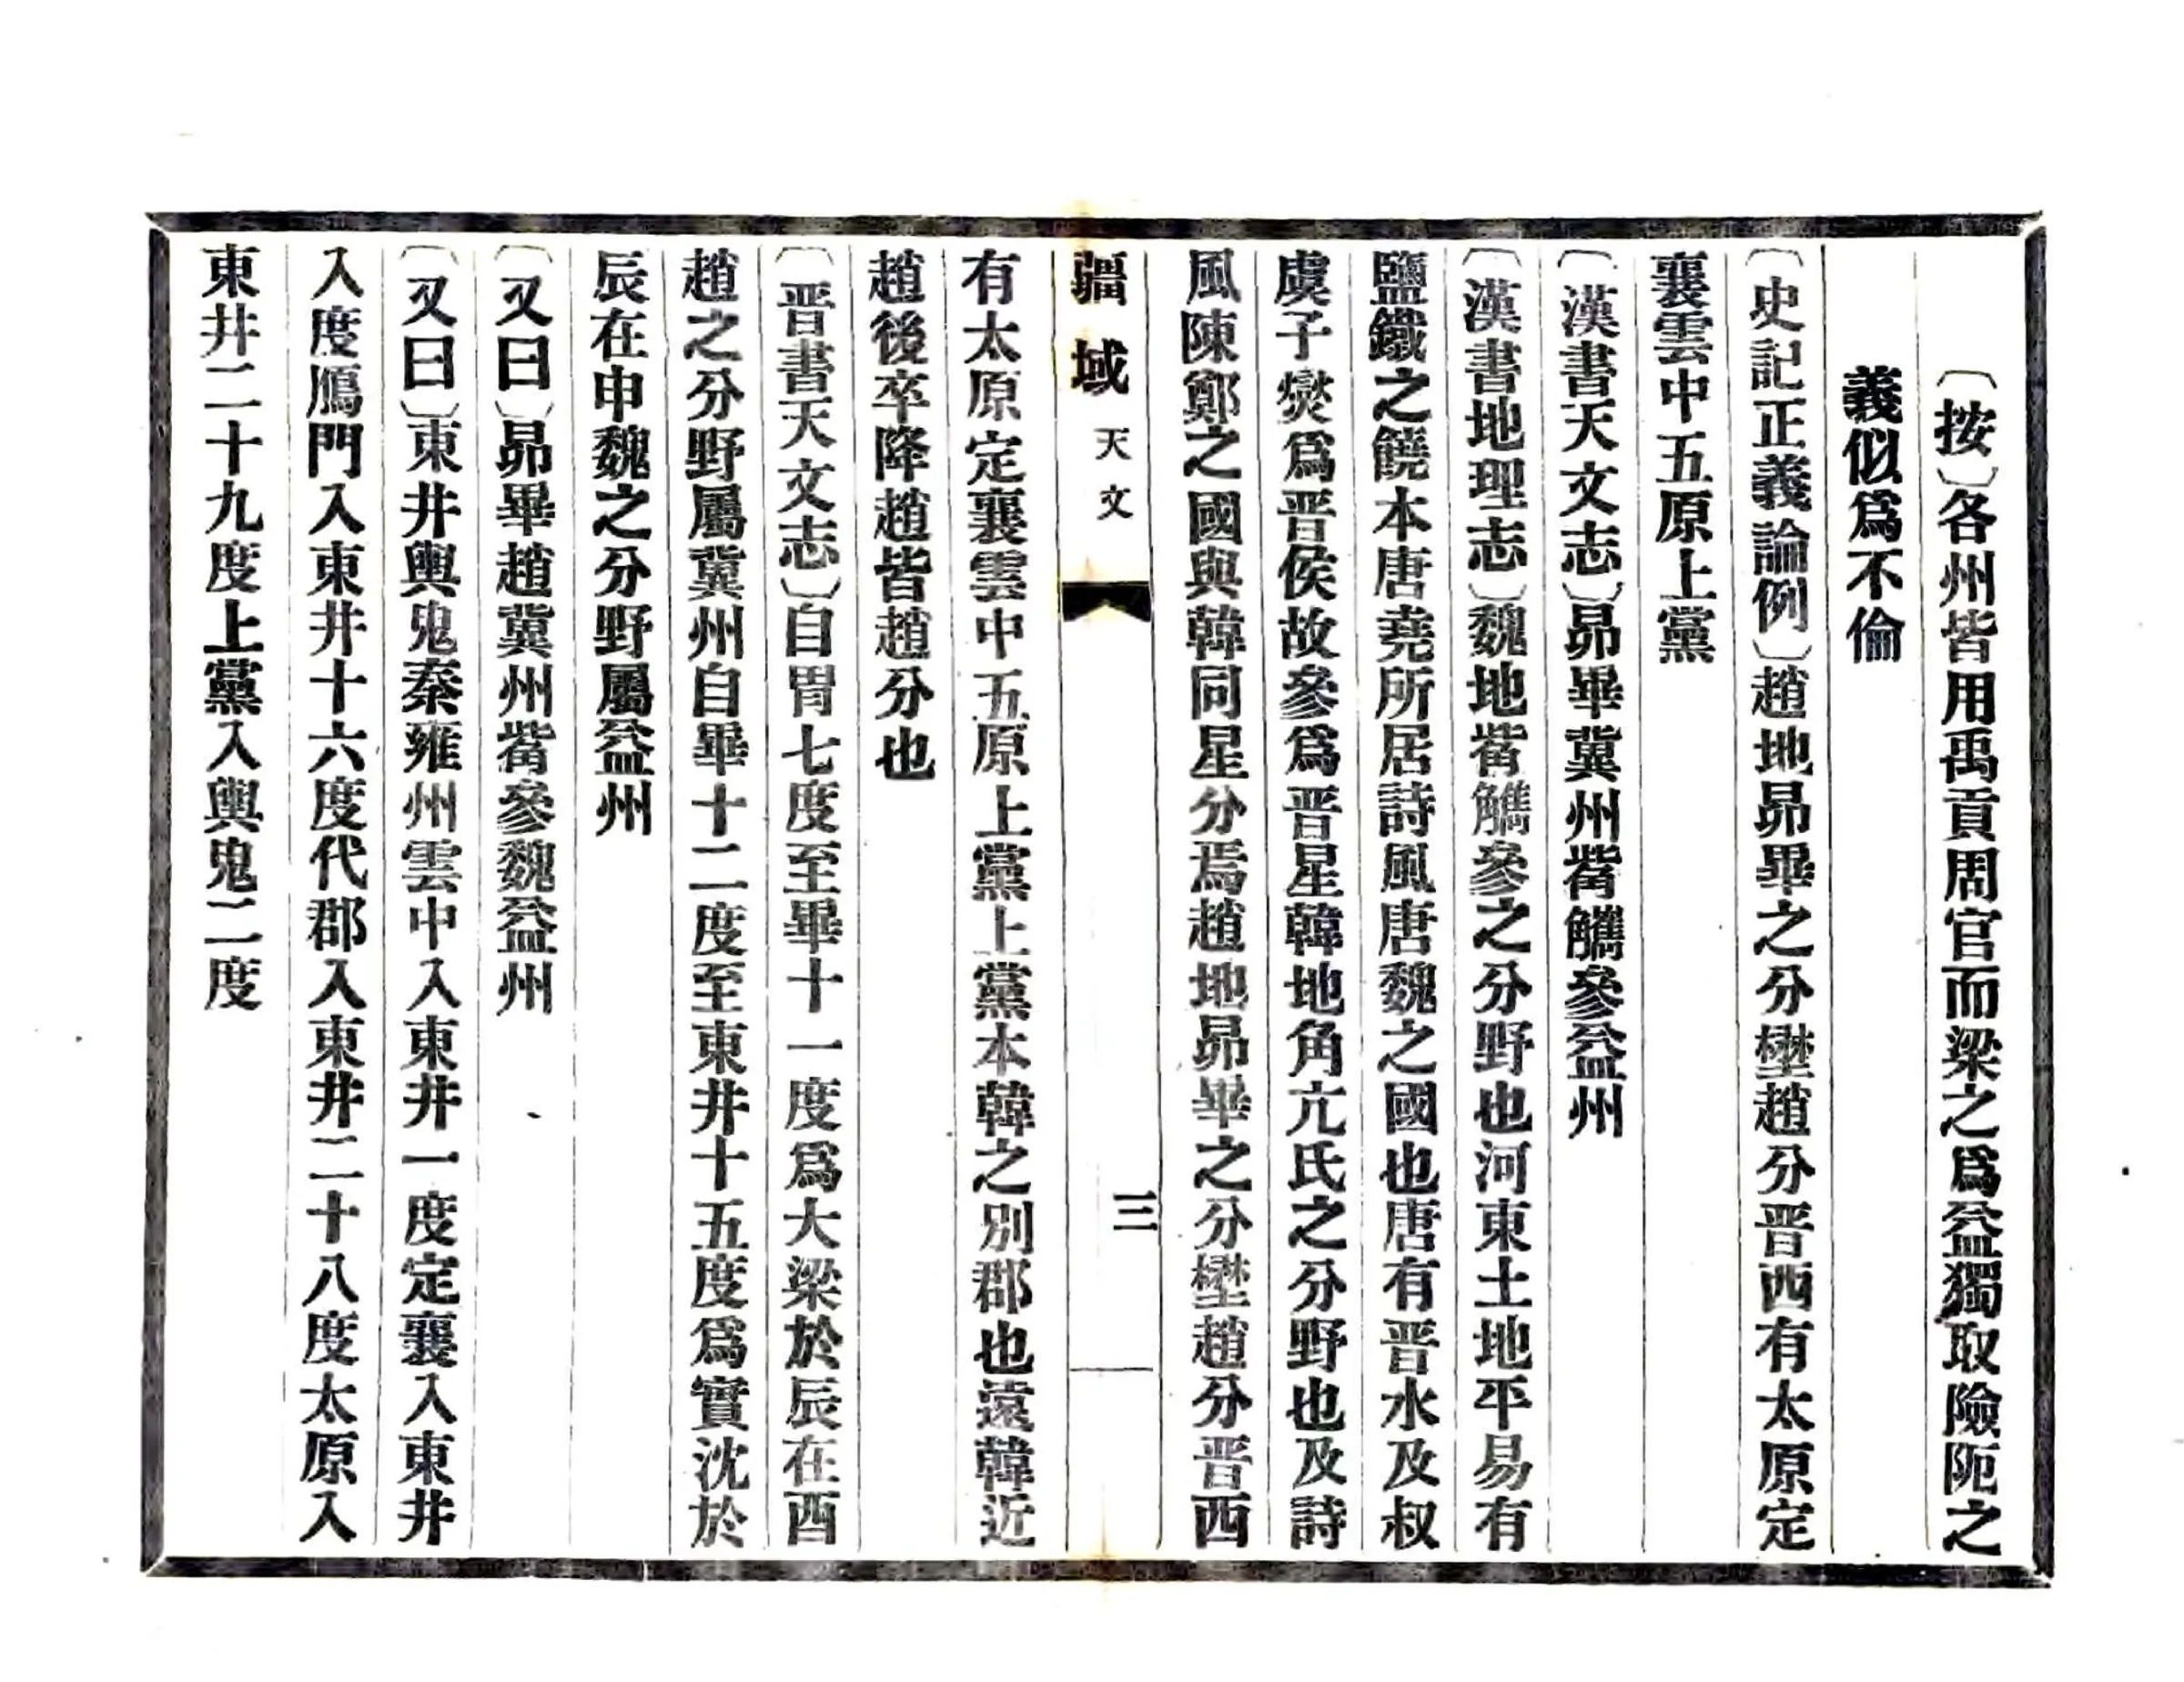 〔按〕各州皆用禹貢周官而梁之爲益獨取險阨之
義似爲不倫
〔史記正義論例〕趙地昴畢之分壄趙分晋西有太原定
襄雲中五原上黨
〔漢書天文志〕昴畢冀州觜觿參益州
〔漢書地理志〕魏地觜觿參之分野也河東土地平易有
鹽鐵之饒本唐堯所居詩風唐魏之國也唐有晋水及叔
虞子爕爲晋侯故參爲晋星韓地角亢氐之分野也及詩
風陳鄭之國與韓同星分焉趙地昴畢之分壄趙分晋西
疆域 天文 三
有太原定襄雲中五原上黨上黨本韓之別郡也遠韓近
趙後卒降趙皆趙分也
〔晋書天文志〕自胃七度至畢十一度爲大梁於辰在酉
趙之分野屬冀州自畢十二度至東井十五度爲實沈於
辰在申魏之分野屬益州
〔又曰〕昴畢趙冀州觜參魏益州
〔又曰〕東井輿鬼秦雍州雲中入東井一度定襄入東井
八度鴈門入東井十六度代郡入東井二十八度太原入
東井二十九度上黨入輿鬼二度